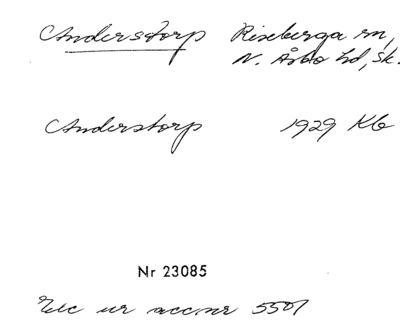 Anderstorp Riseberga sn,
N. Åsbo hd, Sk.
Anderstorp 1929 Kb
Nr 23085
Exc ur acc.nr 5501